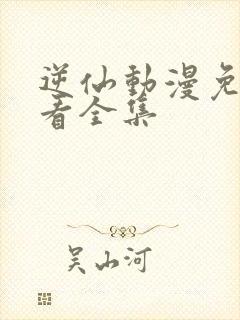 逆仙動漫免
看全集
吴山河